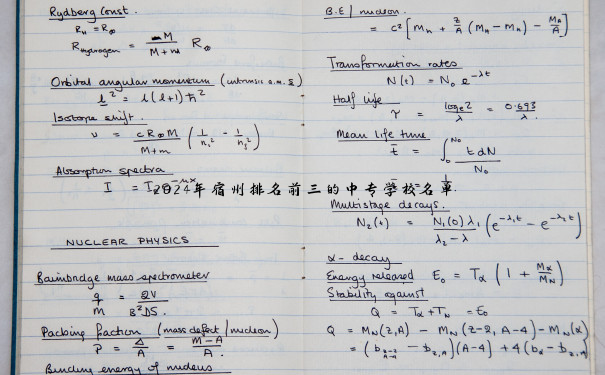 Rydberg Const.
R_H = R_∞
R_Hydrogen = M / (M + m) R_∞
Orbital angular momentum (intrinsic a.m. s)
l² = l(l+1)ħ²
Isotope shift.
ν = cR∞M / (M+m) (1/n₁² - 1/n₂²)
Absorption spectra
I = I₀e^-μx
2024年宿州排名前三的中专学校名单
NUCLEAR PHYSICS
Bainbridge mass spectrometer
q/m = 2V / B²DS.
Packing fraction (mass defect/nucleon)
P = Δ/A = (M-A)/A.
Binding energy of nucleus
B.E / nucleon.
= c² [M_n + Z/A (M_H - M_n) - M_A/A]
Transformation rates
N(t) = N₀ e^-λt
Half life
τ = log_e 2 / λ = 0.693 / λ.
Mean life time
t̄ = ∫₀^N₀ t dN / N₀
Multistage decays.
N₂(t) = N₁(0)λ₁ / (λ₂ - λ) (e^-λ₁t - e^-λ₂t)
α - decay
Energy released E₀ = Tα (1 + Mα/M_N)
Stability against
Q = Tα + T_N = E₀
Q = M_N(Z,A) - M_N(Z-2, A-4) - M_N(α)
= (b - b_Z,A)(A-4) + 4(bα - b_Z,A)